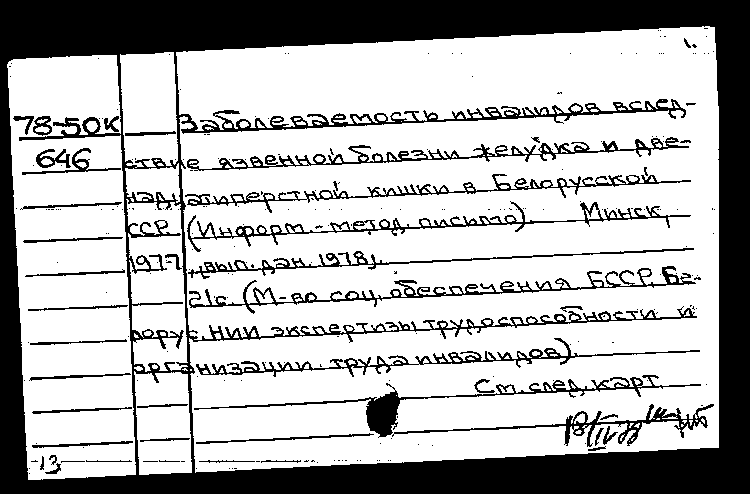 1.
78-50К Заболеваемость инвалидов вслед-
646 ствие язвенной болезни желудка и две-
надцатиперстной кишки в Белорусской
ССР. (Информ.-метод. письмо). Минск,
1977, [вып. дан. 1978].
21с. (М-во соц. обеспечения БССР. Бе-
лорус. НИИ экспертизы трудоспособности и
организации труда инвалидов).
Ст. след. карт.
18/IV-78
13